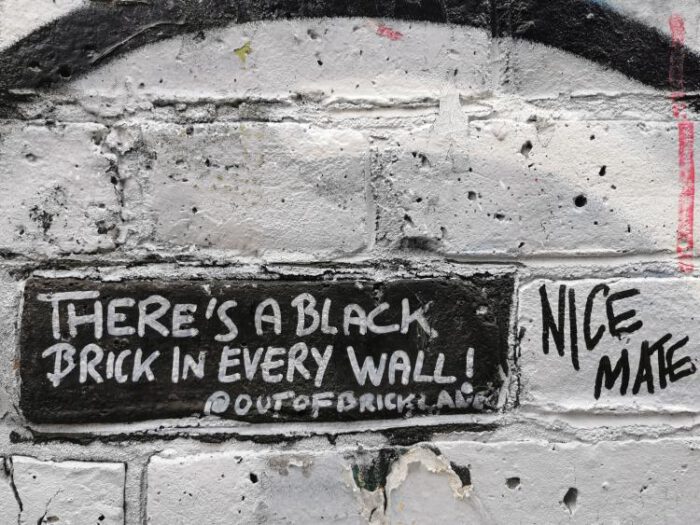 THERE'S A BLACK
BRICK IN EVERY WALL!
@OUTOFBRICKLANE
NICE
MATE